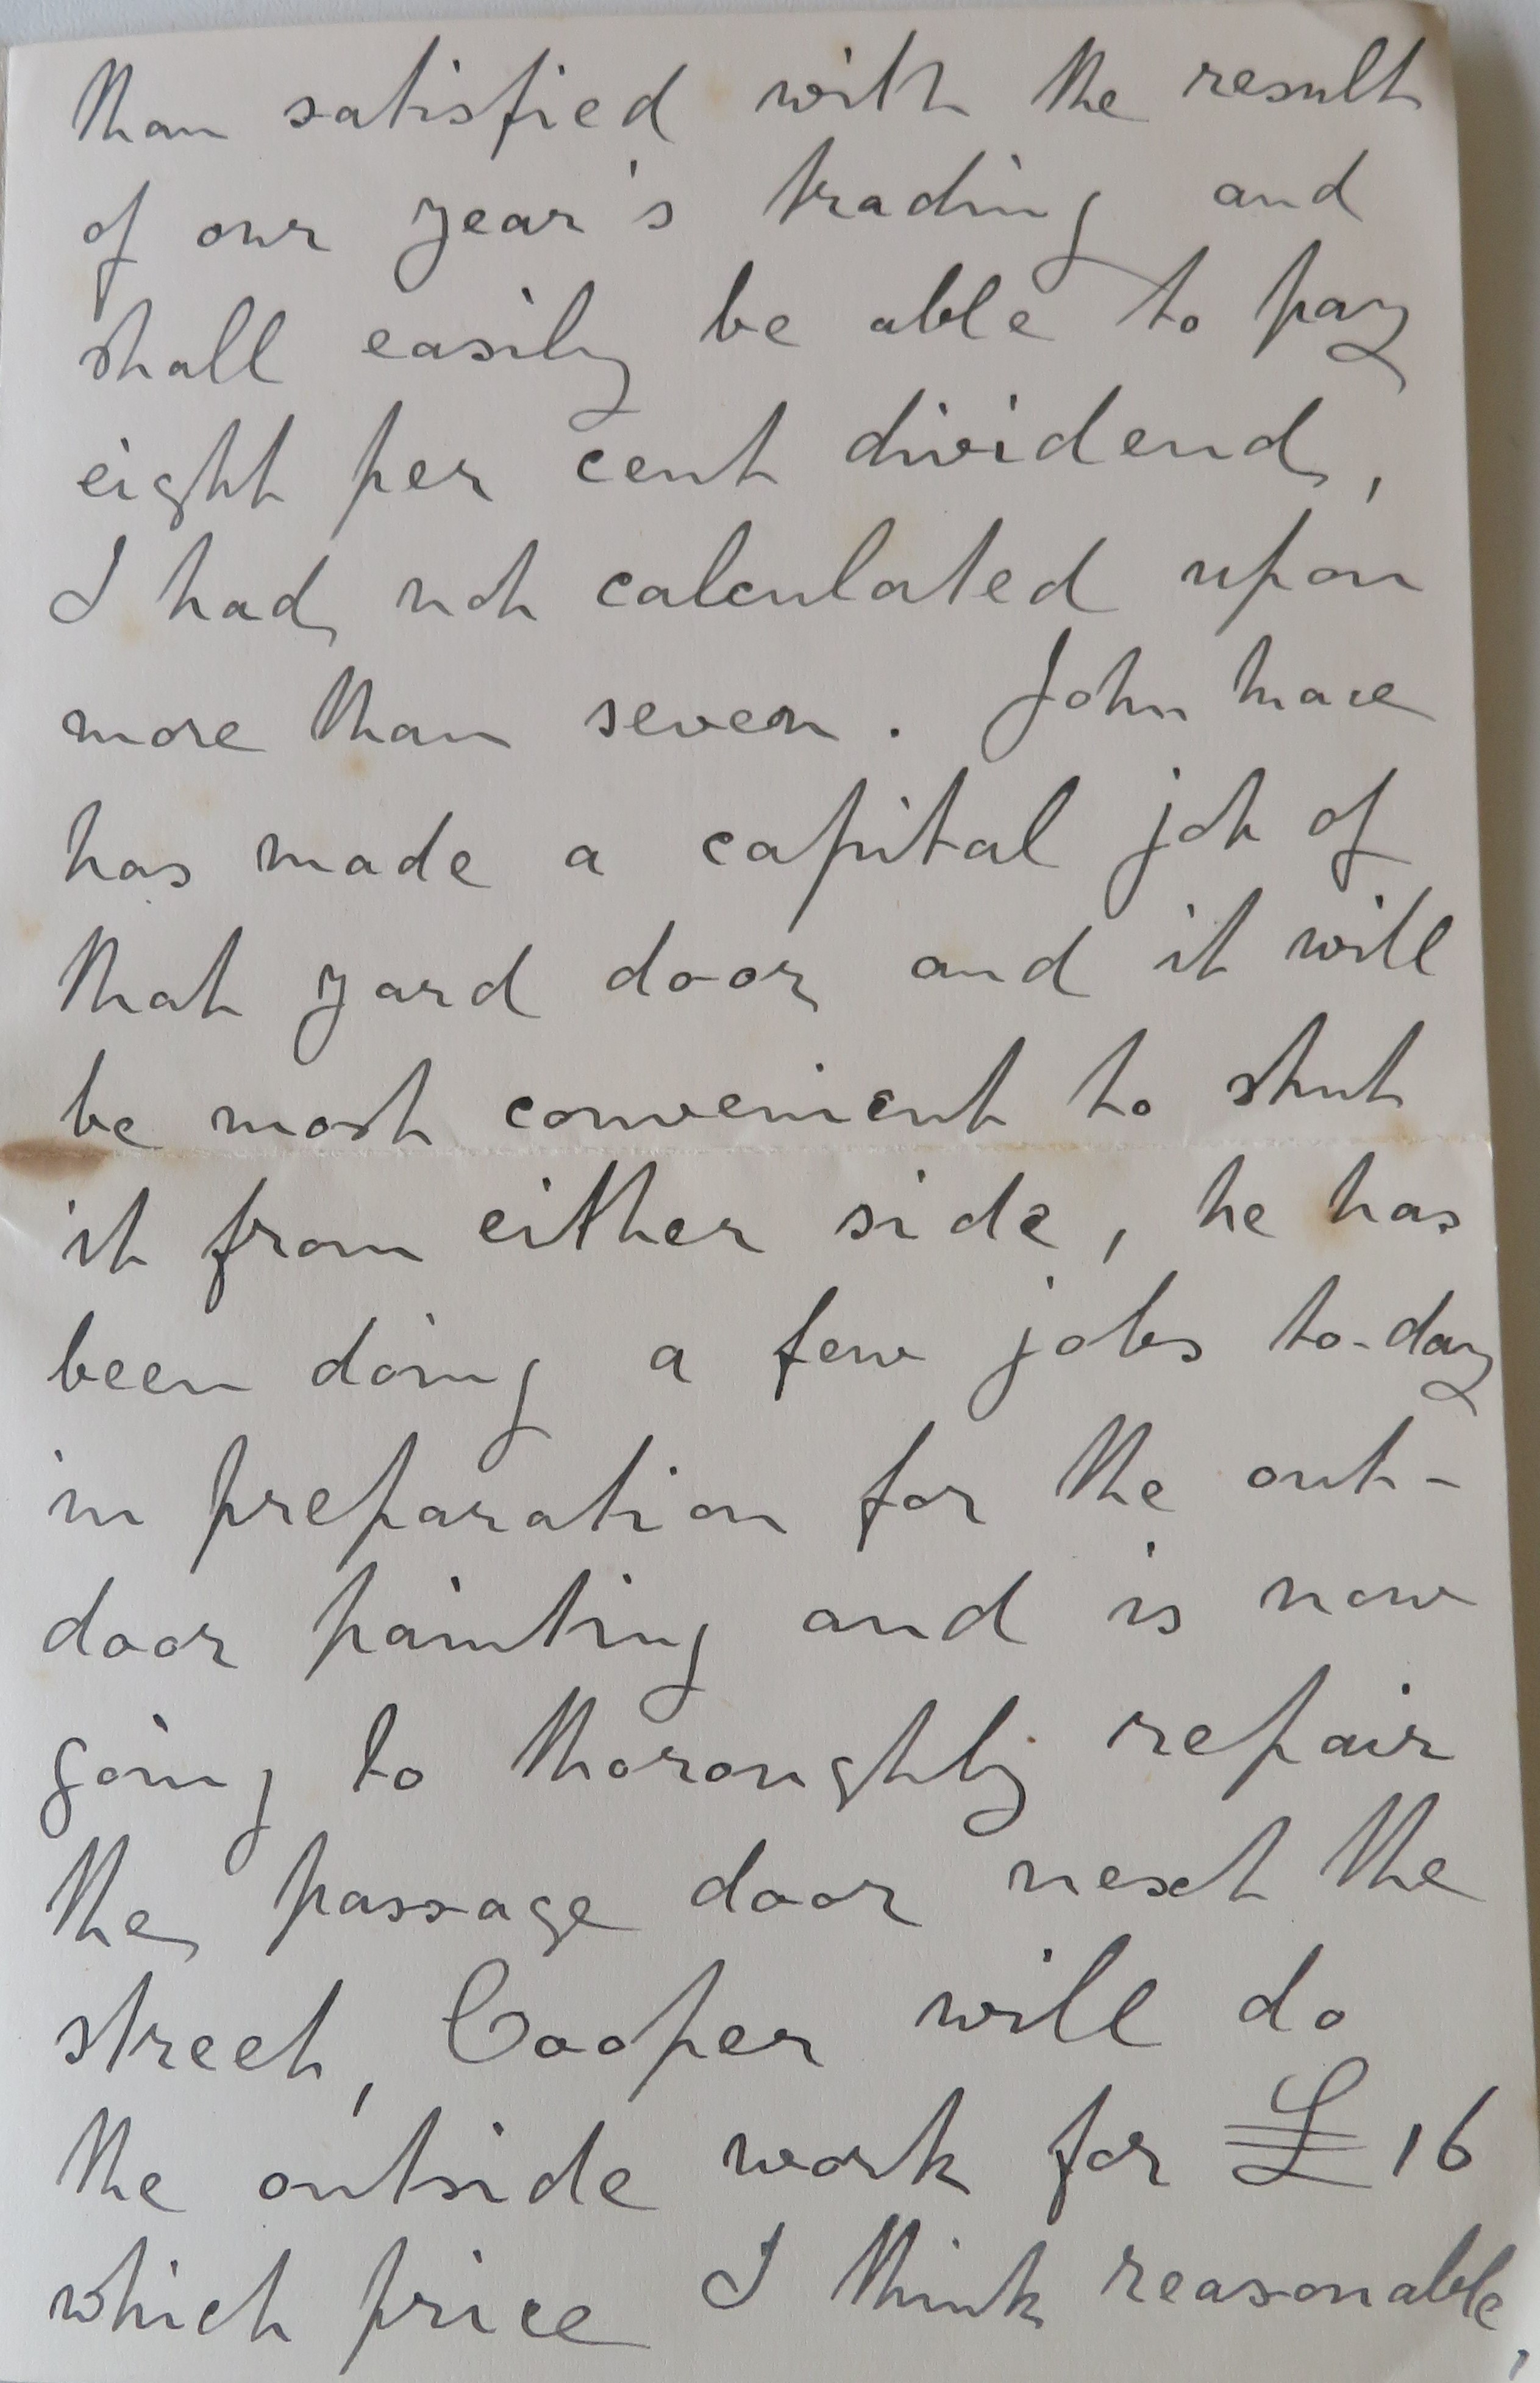 than satisfied with the result
of our year's trading and
shall easily be able to pay
eight per cent dividend,
I had not calculated upon
more than seven. John Mace
has made a capital job of
that yard door and it will
be most convenient to shut
it from either side, he has
been doing a few jobs to-day
in preparation for the out-
door painting and is now
going to thoroughly repair
the passage door next the
street, Cooper will do
the outside work for £16
which price I think reasonable,